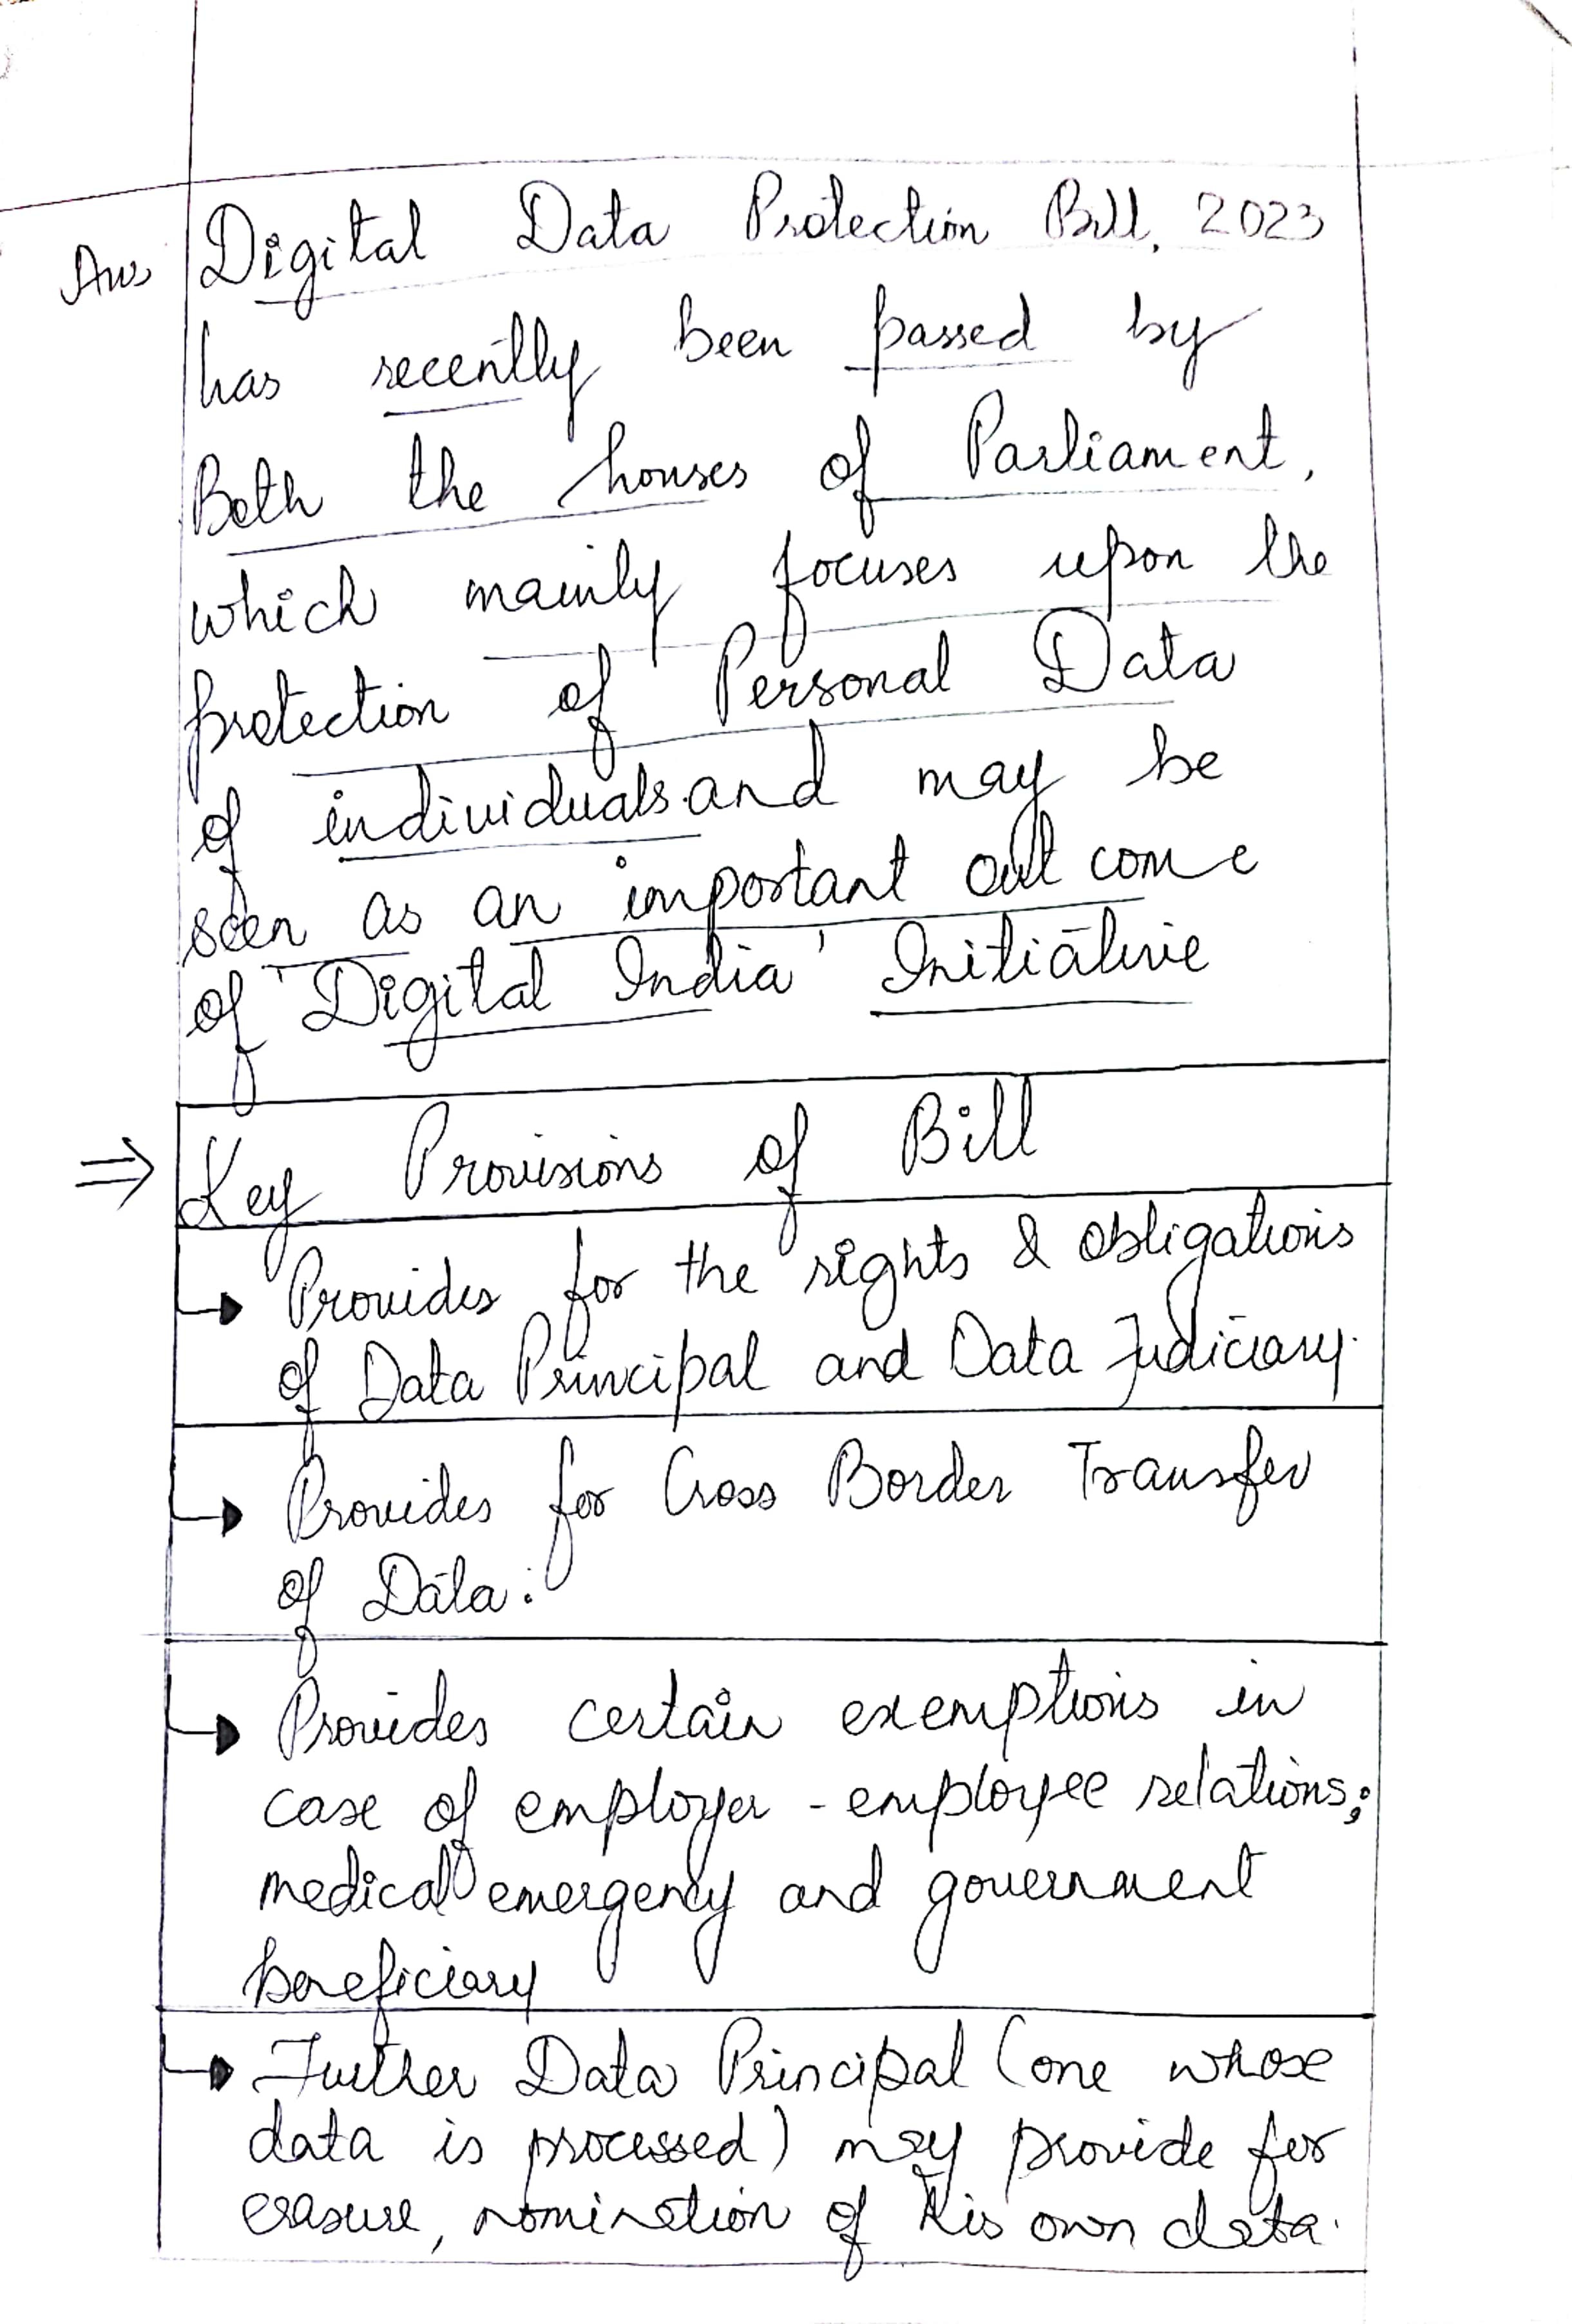 Ans Digital Data Protection Bill, 2023
has recently been passed by
Both the houses of Parliament,
which mainly focuses upon the
protection of Personal Data
of individuals and may be
seen as an important out come
of 'Digital India' Initiative
⇒ Key Provisions of Bill
→ Provides for the rights & obligations
of Data Principal and Data Judiciary.
→ Provides for Cross Border Transfer
of Data:
→ Provides certain exemptions in
case of employer - employee relations;
medical emergency and government
beneficiary
→ Further Data Principal (one whose
data is processed) may provide for
erasure, nomination of his own data.